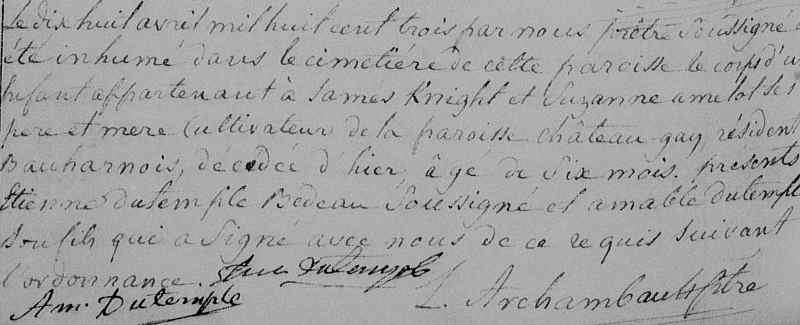 Le dix huit avril mil huit cent trois par nous prêtre soussigné a
été inhumé dans le cimetiére de cette paroisse le corps d'un
Enfant appartenant à James Knight et Suzanne amelot ses
pere et mere Cultivateur de la paroisse château-gay, résident
Bauharnois, décédée d'hier, âgé de six mois. présents
Etienne dutemple Bedeau soussigné et amable dutemple
son fils qui a signé avec nous de ce requis suivant
l'ordonnance. Dutemple
Am. Dutemple L. Archambault Ptre